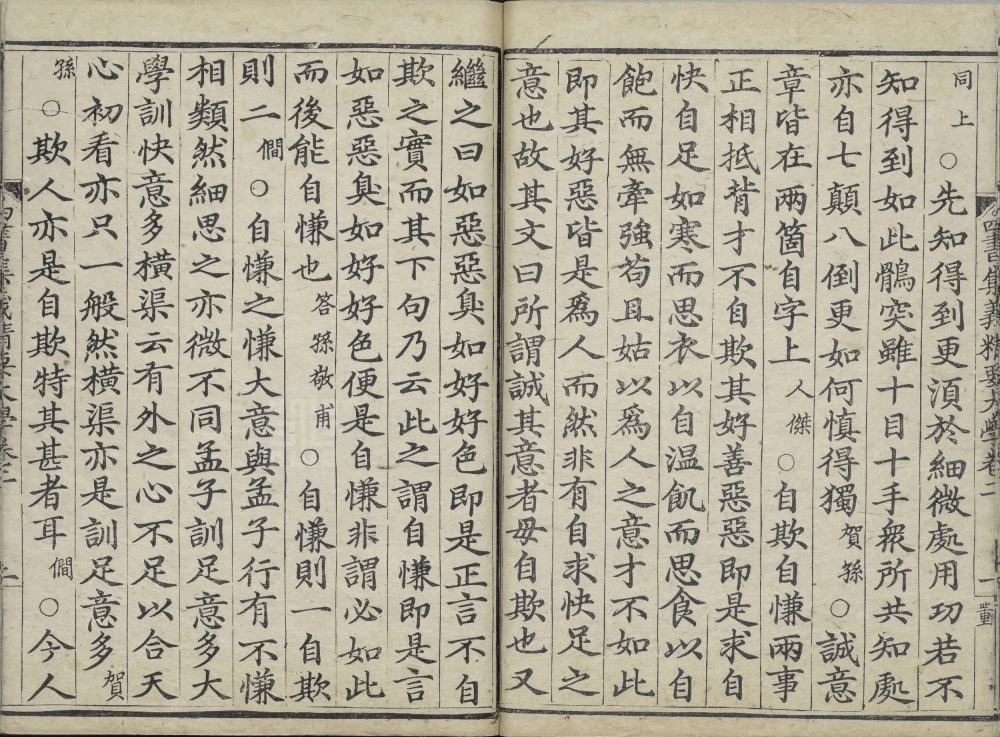 同上○先知得到更須於細微處用功若不
知得到如此鶻突雖十目十手衆所共知處
亦自七顛八倒更如何慎得獨賀孫○誠意
章皆在兩箇自字上人傑○自欺自慊兩事
正相抵背才不自欺其好善惡惡即是求自
快自足如寒而思衣以自温飢而思食以自
飽而無牽強苟且姑以爲人之意才不如此
即其好惡皆是爲人而然非有自求快足之
意也故其文曰所謂誠其意者毋自欺也又
繼之曰如惡惡臭如好好色即是正言不自
欺之實而其下句乃云此之謂自慊即是言
如惡惡臭如好好色便是自慊非謂必如此
而後能自慊也答孫敬甫○自慊則一自欺
則二僩○自慊之慊大意與孟子行有不慊
相類然細思之亦微不同孟子訓足意多大
學訓快意多橫渠云有外之心不足以合天
心初看亦只一般然橫渠亦是訓足意多賀
孫○欺人亦是自欺特其甚者耳僩○今人
四書集義精要大學卷二